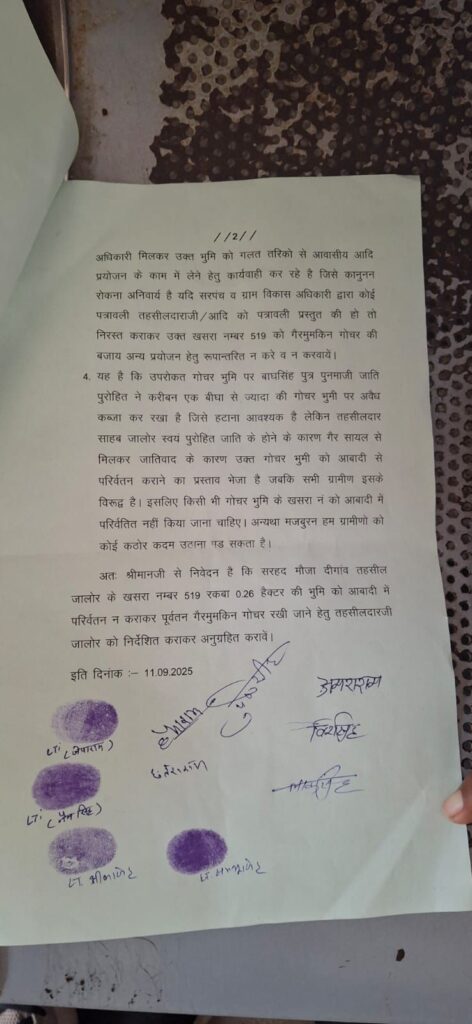 //2//
अधिकारी मिलकर उक्त भुमि को गलत तरिको से आवासीय आदि
प्रयोजन के काम में लेने हेतु कार्यवाही कर रहे है जिसे कानुनन
रोकना अनिवार्य है यदि सरपंच व ग्राम विकास अधिकारी द्वारा कोई
पत्रावली तहसीलदाराजी/आदि को पत्रावली प्रस्तुत की हो तो
निरस्त कराकर उक्त खसरा नम्बर 519 को गैरमुमकिन गोचर की
बजाय अन्य प्रयोजन हेतु रूपान्तरित न करे व न करवायें।
4. यह है कि उपरोकत गोचर भुमि पर बाघसिंह पुत्र पुनमाजी जाति
पुरोहित ने करीबन एक बीघा से ज्यादा की गोचर भुमी पर अवैध
कब्जा कर रखा है जिसे हटाना आवश्यक है लेकिन तहसीलदार
साहब जालोर स्वयं पुरोहित जाति के होने के कारण गैर सायल से
मिलकर जातिवाद के कारण उक्त गोचर भुमी को आबादी से
परिर्वतन कराने का प्रस्ताव भेजा है जबकि सभी ग्रामीण इसके
विरूद्व है। इसलिए किसी भी गोचर भुमि के खसरा नं को आबादी में
परिवतित नहीं किया जाना चाहिए। अन्यथा मजबुरन हम ग्रामीणो को
कोई कठोर कदम उठाना पड सकता है।
अतः श्रीमानजी से निवेदन है कि सरहद मौजा दीगांव तहसील
जालोर के खसरा नम्बर 519 रकबा 0.26 हैक्टर की भुमि को आबादी में
परिर्वतन न कराकर पूर्वतन गैरमुमकिन गोचर रखी जाने हेतु तहसीलदारजी
जालोर को निर्देशित कराकर अनुग्रहित करावें।
इति दिनांक :– 11.09.2025
LTi
LTi
LT
LT